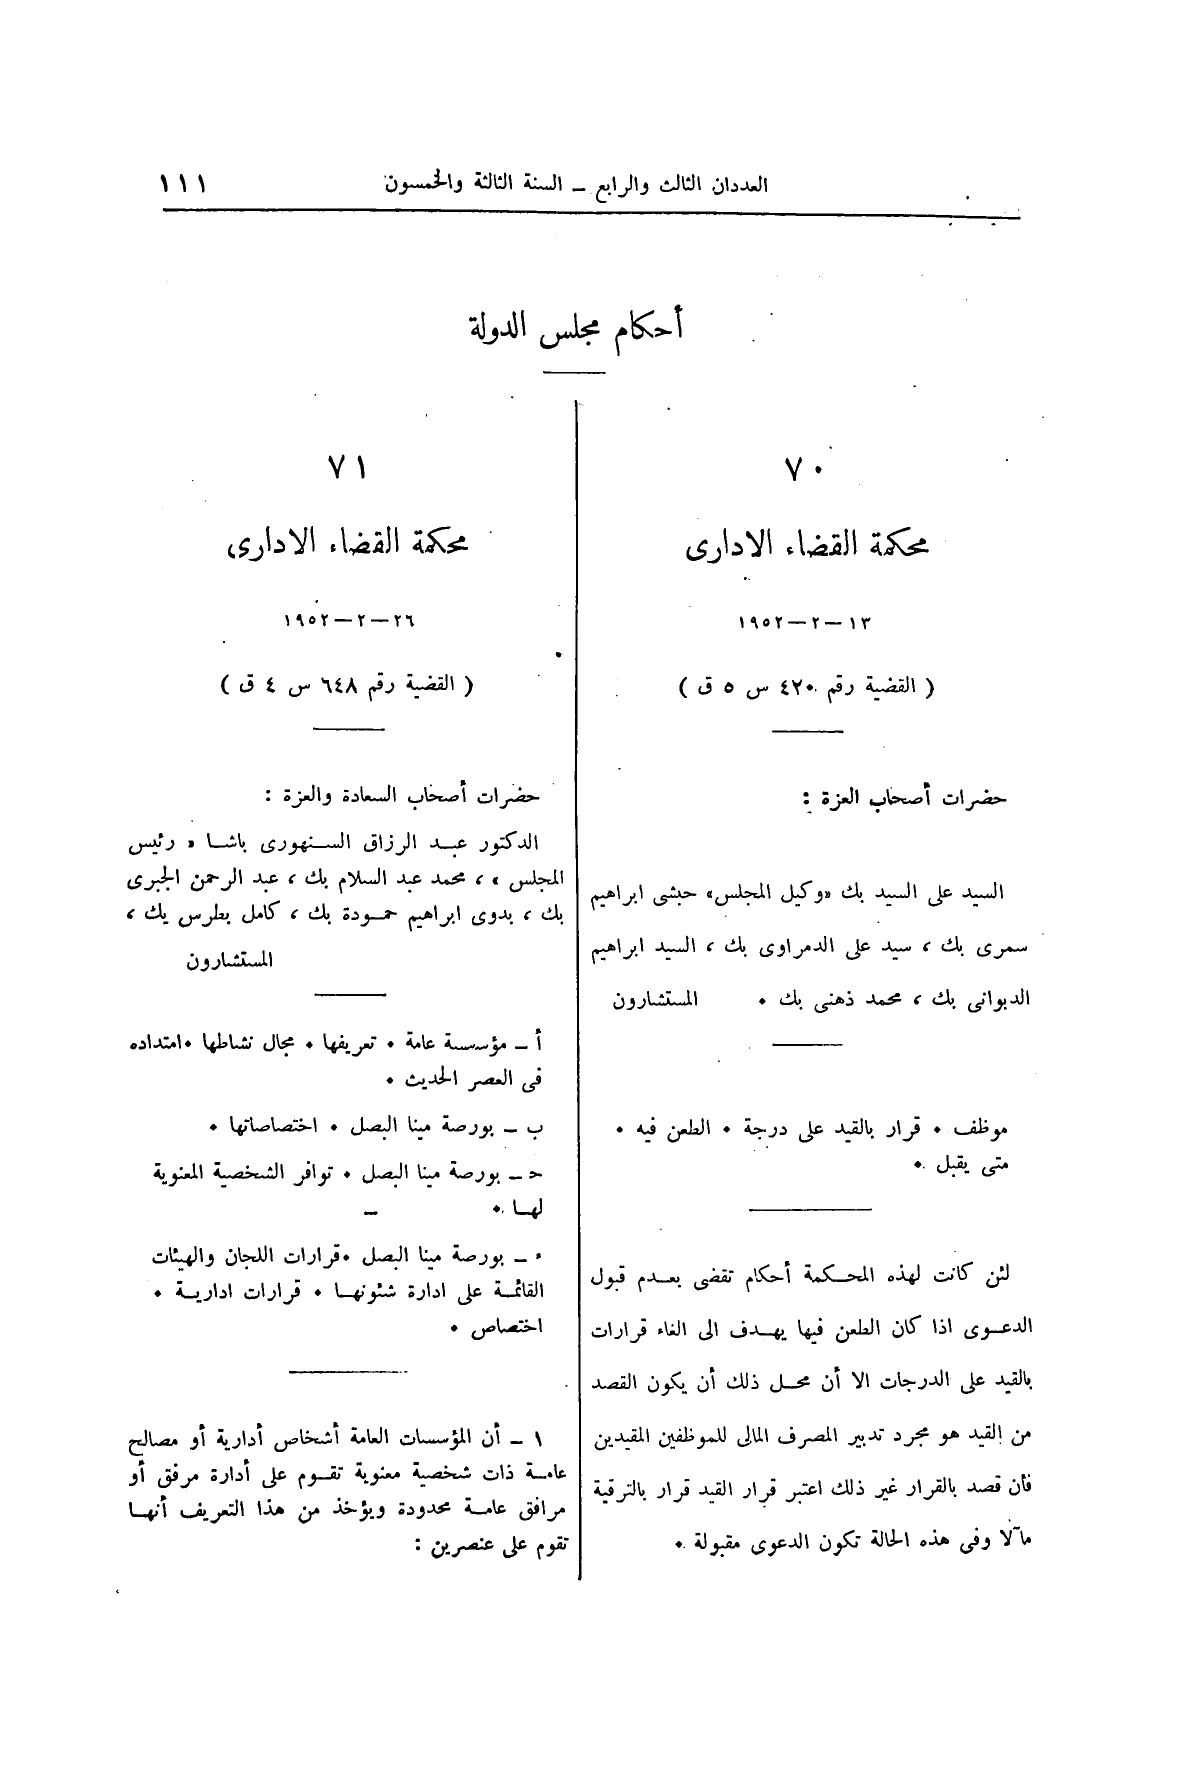 العددان الثالث والرابع – السنة الثالثة والخمسون ١١١
أحكام مجلس الدولة
٧٠
محكمة القضاء الادارى
١٣ – ٢ – ١٩٥٢
( القضية رقم ٤٢٠ س ٥ ق )
حضرات أصحاب العزة :
السيد على السيد بك «وكيل المجلس» حبشى ابراهيم
سمرى بك ، سيد على الدمراوى بك ، السيد ابراهيم
الديوانى بك ، محمد ذهنى بك . المستشارون
موظف . قرار بالقيد على درجة . الطعن فيه .
متى يقبل .
لئن كانت لهذه المحكمة أحكام تقضى بعدم قبول
الدعوى اذا كان الطعن فيها يهدف الى الغاء قرارات
بالقيد على الدرجات الا أن محل ذلك أن يكون القصد
من القيد هو مجرد تدبير المصرف المالى للموظفين المقيدين
فأن قصد بالقرار غير ذلك اعتبر قرار القيد قرار بالترقية
مآلا وفى هذه الحالة تكون الدعوى مقبولة .
٧١
محكمة القضاء الادارى
٢٦ – ٢ – ١٩٥٢
( القضية رقم ٦٤٨ س ٤ ق )
حضرات أصحاب السعادة والعزة :
الدكتور عبد الرزاق السنهورى باشا « رئيس
المجلس » ، محمد عبد السلام بك ، عبد الرحمن الجبرى
بك ، بدوى ابراهيم حمودة بك ، كامل بطرس بك ،
المستشارون
أ – مؤسسة عامة . تعريفها . مجال نشاطها . امتداده
فى العصر الحديث .
ب – بورصة مينا البصل . اختصاصاتها .
ح – بورصة مينا البصل . توافر الشخصية المعنوية
لها .
ء – بورصة مينا البصل . قرارات اللجان والهيئات
القائمة على ادارة شئونها . قرارات ادارية .
اختصاص .
١ – أن المؤسسات العامة أشخاص أدارية أو مصالح
عامة ذات شخصية معنوية تقوم على أدارة مرفق أو
مرافق عامة محدودة ويؤخذ من هذا التعريف أنها
تقوم على عنصرين :